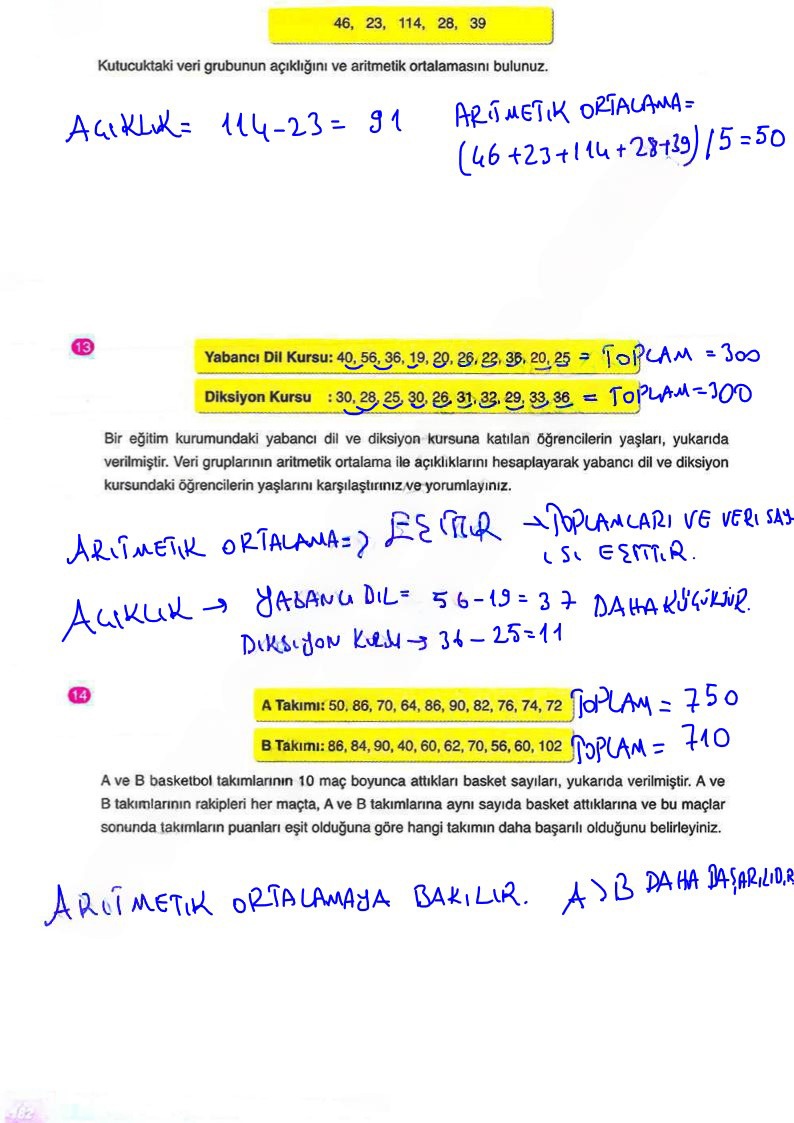 46, 23, 114, 28, 39
Kutucuktaki veri grubunun açıklığını ve aritmetik ortalamasını bulunuz.
AÇIKLIK = 114-23 = 91
ARİTMETİK ORTALAMA =
(46+23+114+28+39)/5=50
13
Yabancı Dil Kursu: 40, 56, 36, 19, 20, 26, 22, 36, 20, 25 = TOPLAM = 300
Diksiyon Kursu : 30, 28, 25, 30, 26, 31, 32, 29, 33, 36 = TOPLAM=300
Bir eğitim kurumundaki yabancı dil ve diksiyon kursuna katılan öğrencilerin yaşları, yukarıda
verilmiştir. Veri gruplarının aritmetik ortalama ile açıklıklarını hesaplayarak yabancı dil ve diksiyon
kursundaki öğrencilerin yaşlarını karşılaştırınız ve yorumlayınız.
ARİTMETİK ORTALAMA => EŞİTTİR → TOPLAMLARI VE VERİ SAY
ISI EŞİTTİR.
AÇIKLIK → YABANCI DİL = 56-19 = 37 DAHA KÜÇÜKTÜR.
DİKSİYON KURSU → 36-25=11
14
A Takımı: 50, 86, 70, 64, 86, 90, 82, 76, 74, 72 TOPLAM = 750
B Takımı: 86, 84, 90, 40, 60, 62, 70, 56, 60, 102 TOPLAM = 710
A ve B basketbol takımlarının 10 maç boyunca attıkları basket sayıları, yukarıda verilmiştir. A ve
B takımlarının rakipleri her maçta, A ve B takımlarına aynı sayıda basket attıklarına ve bu maçlar
sonunda takımların puanları eşit olduğuna göre hangi takımın daha başarılı olduğunu belirleyiniz.
ARİTMETİK ORTALAMAYA BAKILIR. A > B DAHA BAŞARILIDIR
182